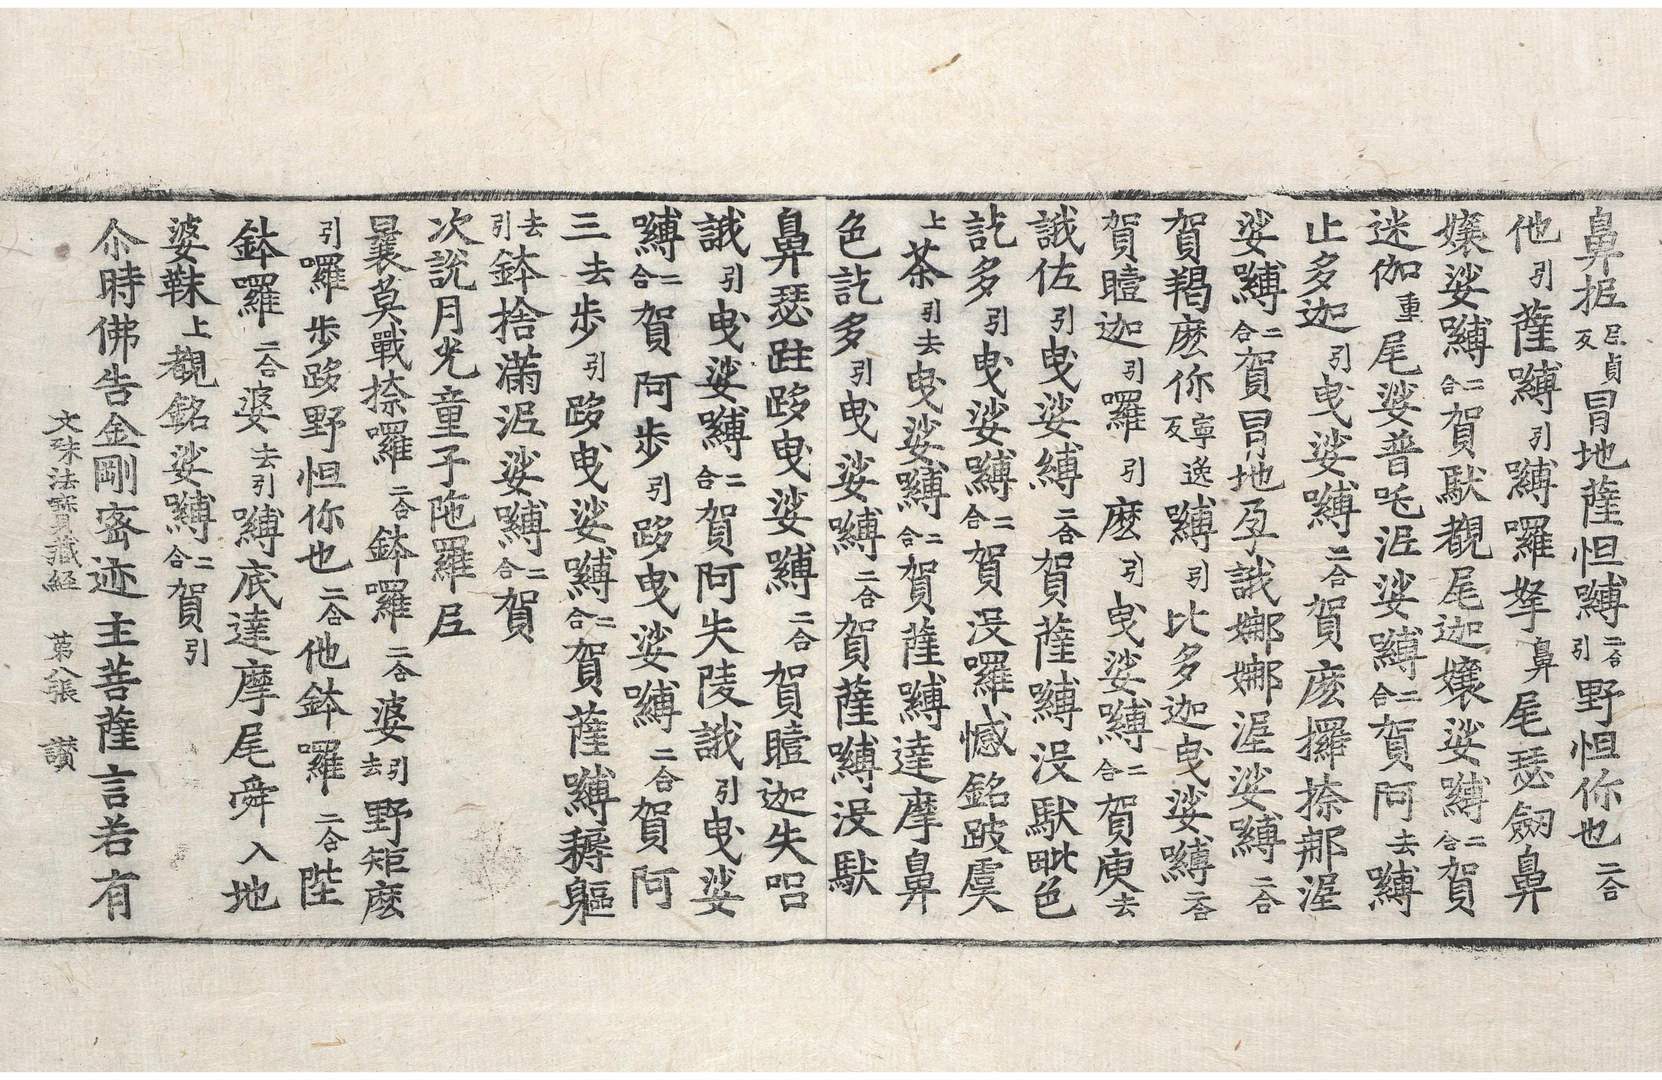 鼻抳尼貞反冒地薩怛嚩二合引野怛你也二合
他引薩嚩引嚩囉拏鼻尾瑟劒鼻
嬢娑嚩二合賀馱覩尾迦嬢娑嚩二合賀
迷伽重尾娑普吒泥娑嚩二合賀阿去嚩
止多迦引曳娑嚩二合賀麽攞捺那渥
娑嚩二合賀冒地孕誐娜娜渥娑嚩二合
賀羯麽你寧逸反嚩引比多迦曳娑嚩二合
賀曀迦引囉引麽引曳娑嚩二合賀庾去
誐佐引曳娑嚩二合賀薩嚩没馱毗色
訖多引曳娑嚩二合賀没囉憾銘跛虞
上茶引去曳娑嚩二合賀薩嚩達摩鼻
色訖多引曳娑嚩二合賀薩嚩没馱
鼻瑟跓跢曳娑嚩二合賀曀迦失呬
誐引曳娑嚩二合賀阿失陵誐引曳娑
嚩二合賀阿步引跢曳娑嚩二合賀阿
三去步引跢曳娑嚩二合賀薩嚩耨軀
去引鉢捨滿泥娑嚩二合賀
次說月光童子陁羅尼
曩莫戰捺囉二合鉢囉二合婆引去野矩麽
引囉步跢野怛你也二合他鉢囉二合陛
鉢囉二合婆去引嚩底達摩尾舜入地
婆靺上覩銘娑嚩二合賀引
尒時佛告金剛宻迹主菩薩言若有
文殊法寶藏經 第八張 讃